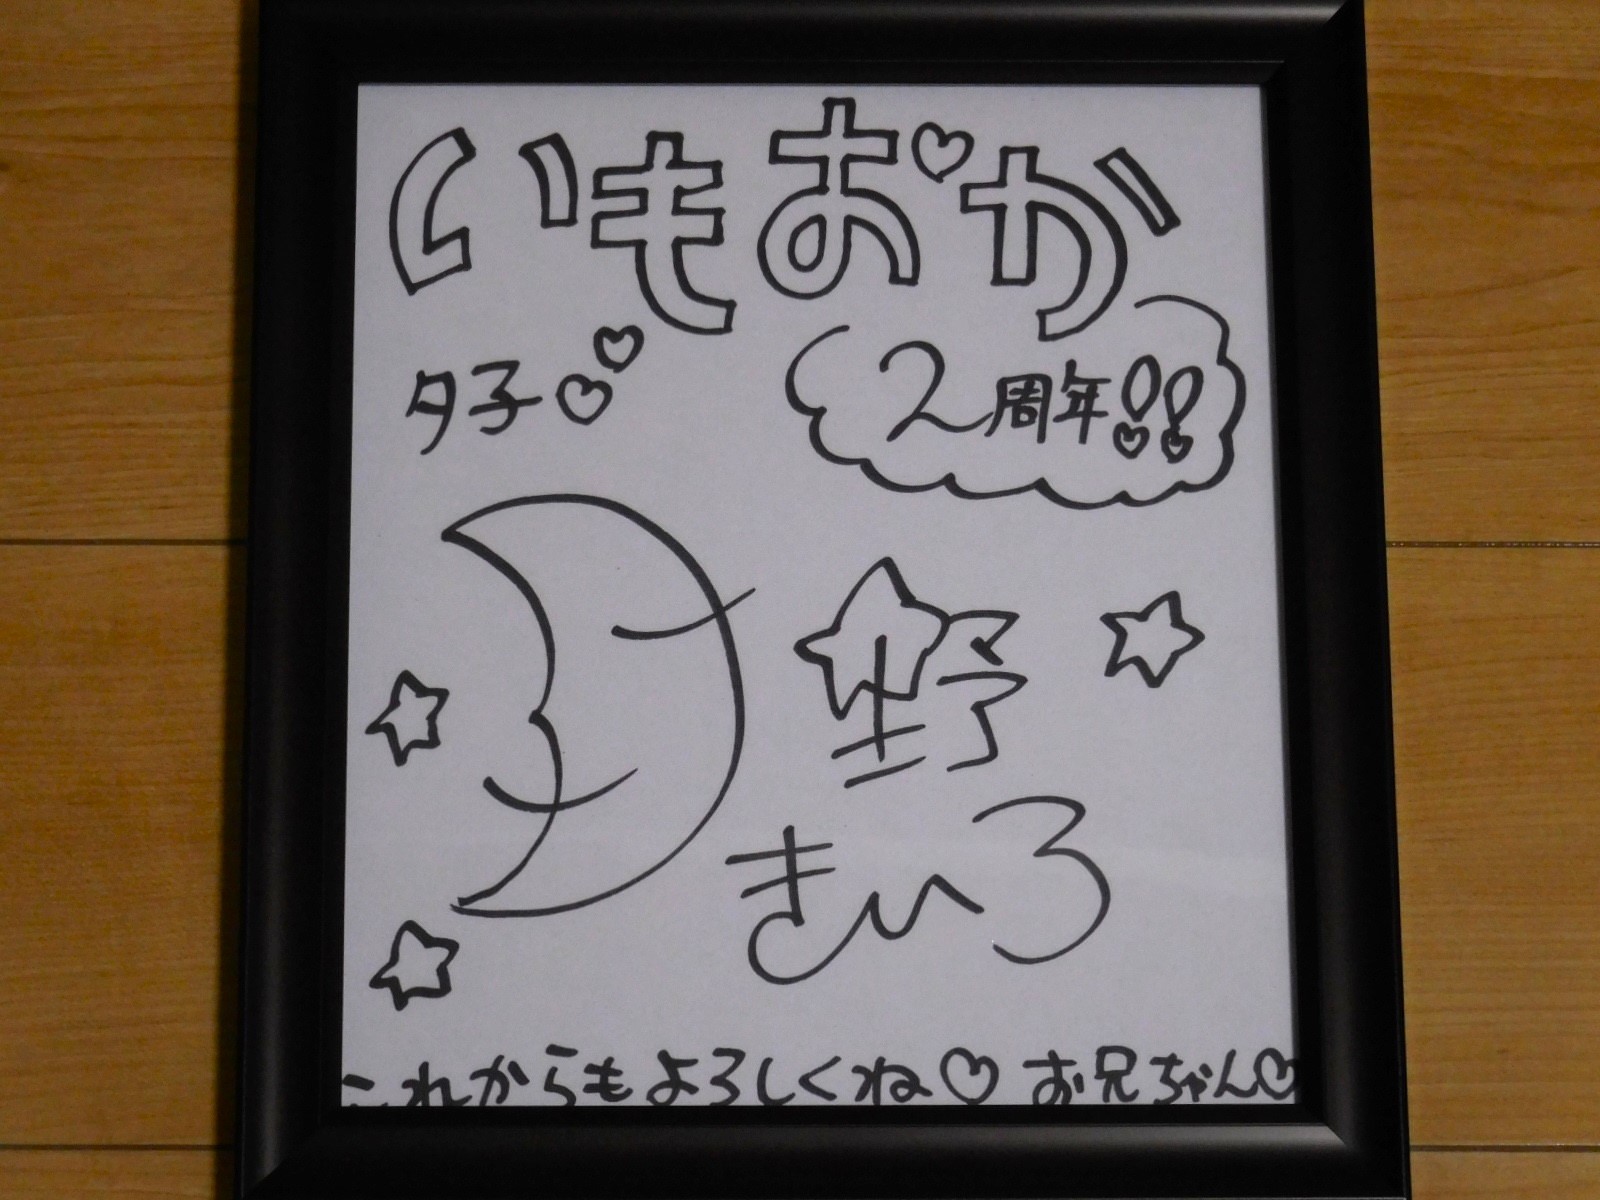 いもおか
夕子
2周年!!
野
きいろ
これからもよろしくね♡ お兄ちゃん♡